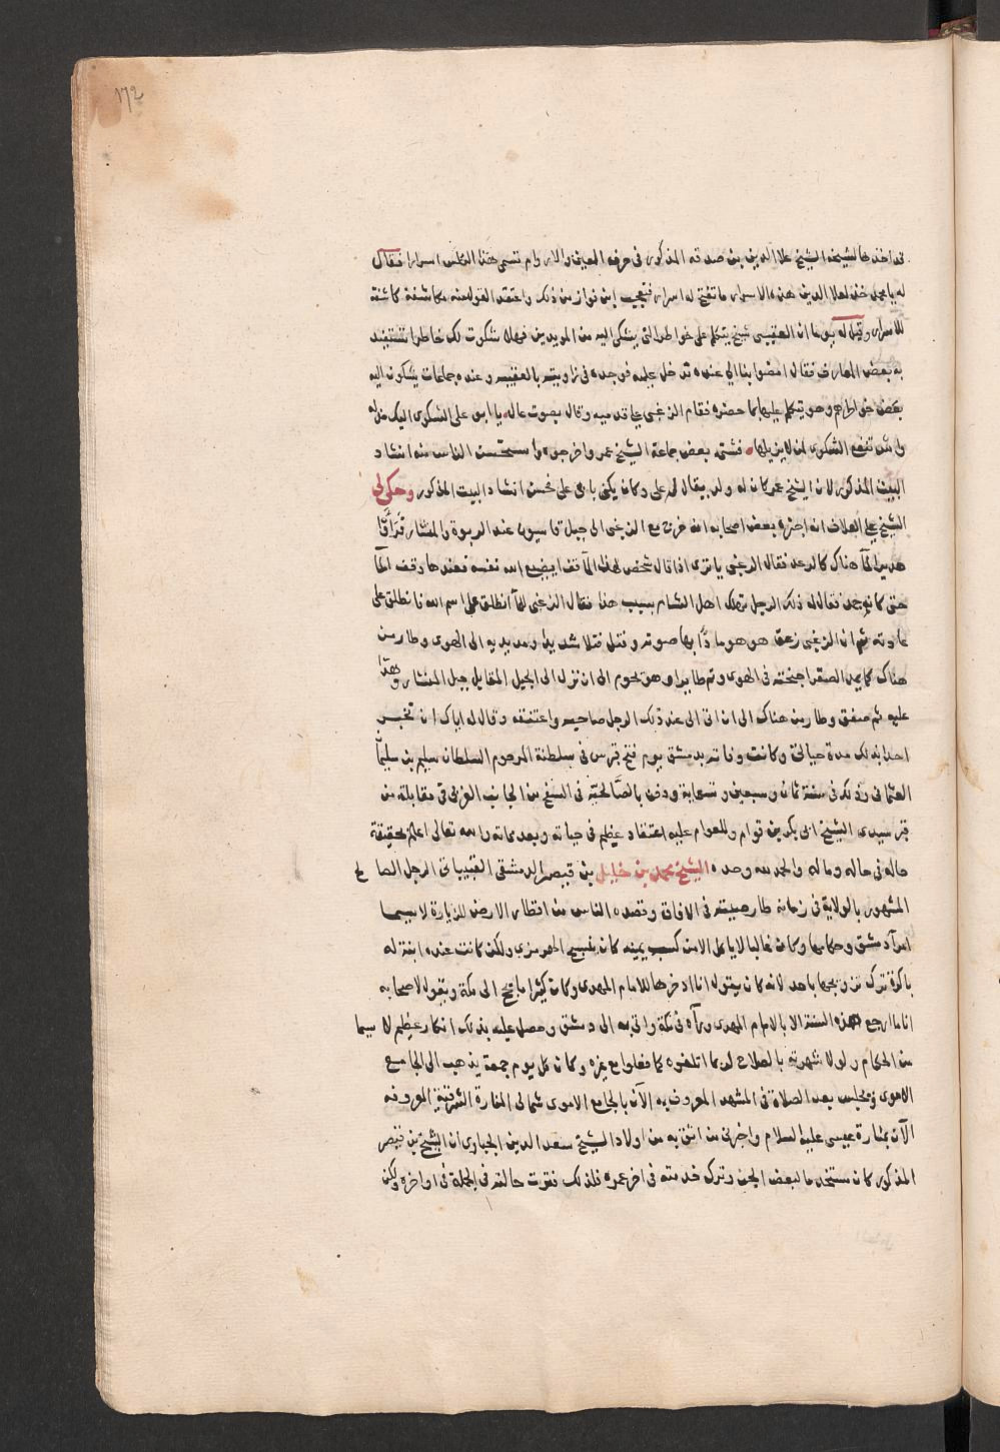 ١٧٢
قد اخذها لشيخه الشيخ علا الدين بن صدقه المذكور فى حرفه المعين والاروام تسمى هذا الكلس اسرارا فقال
له يا محمد خذ لعلا الدين هذه الاسرار ما تفتح له اسرار فتعجب ابن فواز من ذلك واعتقد انه مكاشفة كاشفة
للاسرار وقيل له يوما ان العقيبى شيخ يتكلم على خواطر التى يشكى اليه من المريدين فهلا شكوت لك خاطرا تستفيد
به بعض المعارف فقال امضوا بنا الى عنده فدخل عليه فوجده فى زاويته بالعقيبه وعنده جماعات يشكون اليه
بعض خواطرهم وهو يتكلم عليها بما حضره فقام الزغبى على قدميه وقال بصوت عال يا ابو على الشكوى اليك مذله
وايش تنفع الشكوى لمن لا يزيلها فشتمه بعض جماعة الشيخ عمر واخرجوه واستحسن الناس منه انشاد
البيت المذكور لان الشيخ عمر كان له ولد يقال له على وكان يكنى بابى على فحسن انشاد البيت المذكور وحكى لى
الشيخ على العلاف انه اخبره بعض اصحابه انه خرج مع الزغبى الى جبل قاسيون عند الربوة والمنشار فرأوا
هدير الما هناك كالرعد فقال الزغبى يا ترى اذا قال شخص لهذا الما قف ايضيع الله نفسه فعندها وقف الما
حتى كانه جمد فقال له ذلك الرجل تهلك اهل الشام بسبب هذا فقال الزغبى للما انطلق على اسم الله فانطلق على
عادته ثم ان الزغبى زعق هو هو مادًا بها صوته وفتل فتلا شديدا ومد يديه الى الهوى وطار من
هناك كما يمد الصقر اجنحته فى الهوى وتم طايرا وهو يحوم الى ان نزل الى الجبل المقابل جبل المنشار وهدا
عليه ثم صفق وطار من هناك الى ان اتى الى عند ذلك الرجل صاحبه واعتنقه وقال له اياك ان تخبر
احدا بذلك مدة حياتى وكانت وفاته بدمشق يوم فتح قبرس فى سلطنة المرحوم السلطان سليم بن سليمان
العثمانى وذلك فى سنة ثمان وسبعين وتسعماية ودفن بالصالحيه فى السفح من الجانب الغربى فى مقابلة من
قبر سيدى الشيخ ابى بكر بن قوام وللعوام عليه اعتقاد عظيم فى حياته وبعد مماته والله تعالى اعلم بحقيقة
حاله فى حاله وماله والحمد لله وحده الشيخ محمد بن خليل بن قيصر الدمشقى القبيباتى الرجل الصالح
المشهور بالولاية فى زمانه طار صيته فى الافاق وقصده الناس من اقطار الارض للزيارة لا سيما
امرآ دمشق وحكامها وكان غالبا لا ياكل الا من كسب يمينه كان ولكن كانت عنده ابنة له
باكرة ترك تزويجها باحد لانه كان يقول انا ادخرها للامام المهدى وكان كثيرا ما يحج الى مكة ويقول لاصحابه
انا ما ارجع هذه السنة الا بالامام المهدى ورآه فى مكة واتى به الى دمشق وحصل عليه بذلك انكار عظيم لا سيما
من الحكام ولولا شهرته بالصلاح لربما اتلفوه كما فعلوا مع غيره وكان كل يوم جمعة يذهب الى الجامع
الاموى ويجلس بعد الصلاة فى المشهد المعروف به الآن بالجامع الاموى شمالى المنارة الشرقية المعروفه
الآن بمنارة عيسى عليه السلام واخبرنى من اثق به من اولاد الشيخ سعد الدين الجباوى ان الشيخ بن قيصر
المذكور كان مستخدما لبعض الجن وترك خدمته فى اخر عمره فلذلك نقرت حالته فى الجملة فى اواخره ولكن